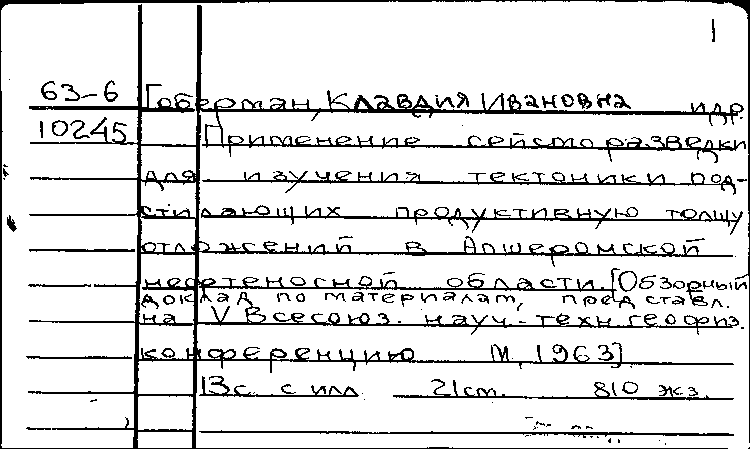 1
63-6 Гоберман, Клавдия Ивановна и др.
10245 Применение сейсморазведки
для изучения тектоники под-
стилающих продуктивную толщу
отложений в Апшеронской
нефтеносной области. [Обзорный
доклад по материалам, представл.
на V Всесоюз. науч.-техн. геофиз.
конференцию М, 1963]
13с. с илл 21см. 810 экз.